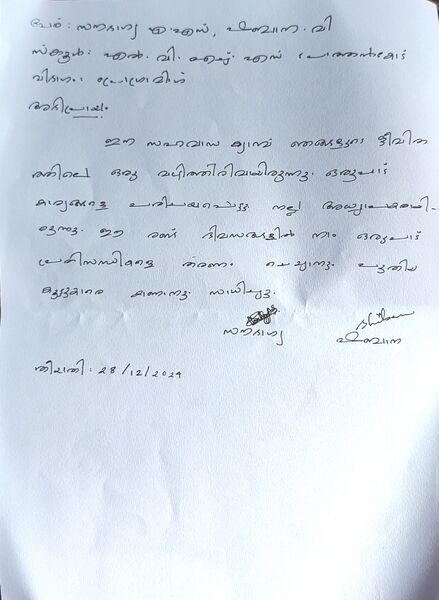 പേര് : സൗഭാഗ്യ എ.എസ്, ഷബാന . വി
സ്കൂൾ : എൽ. വി. എച്ച്. എസ് പോത്തൻകോട്
വിഭാഗം : പ്രോഗ്രാമിംഗ്
അഭിപ്രായം
ഈ സഹവാസ ക്യാമ്പ് ഞങ്ങളുടെ ജീവിത
ത്തിലെ ഒരു വഴിത്തിരിവായിരുന്നു. ഒരുപാട്
കാര്യങ്ങളെ പരിചയപ്പെട്ടു നല്ല അധ്യാപകരായി-
രുന്നു. ഈ രണ്ട് ദിവസങ്ങളിൽ നാം ഒരുപാട്
പ്രതിസന്ധികളെ തരണം ചെയ്യാനും പുതിയ
കൂട്ടുകാരെ കാണാനും സാധിച്ചു.
സൗഭാഗ്യ ഷബാന
തീയതി : 28/12/2024